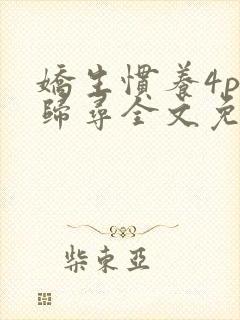 嬌生慣養4p
歸尋全文免
柴東亞